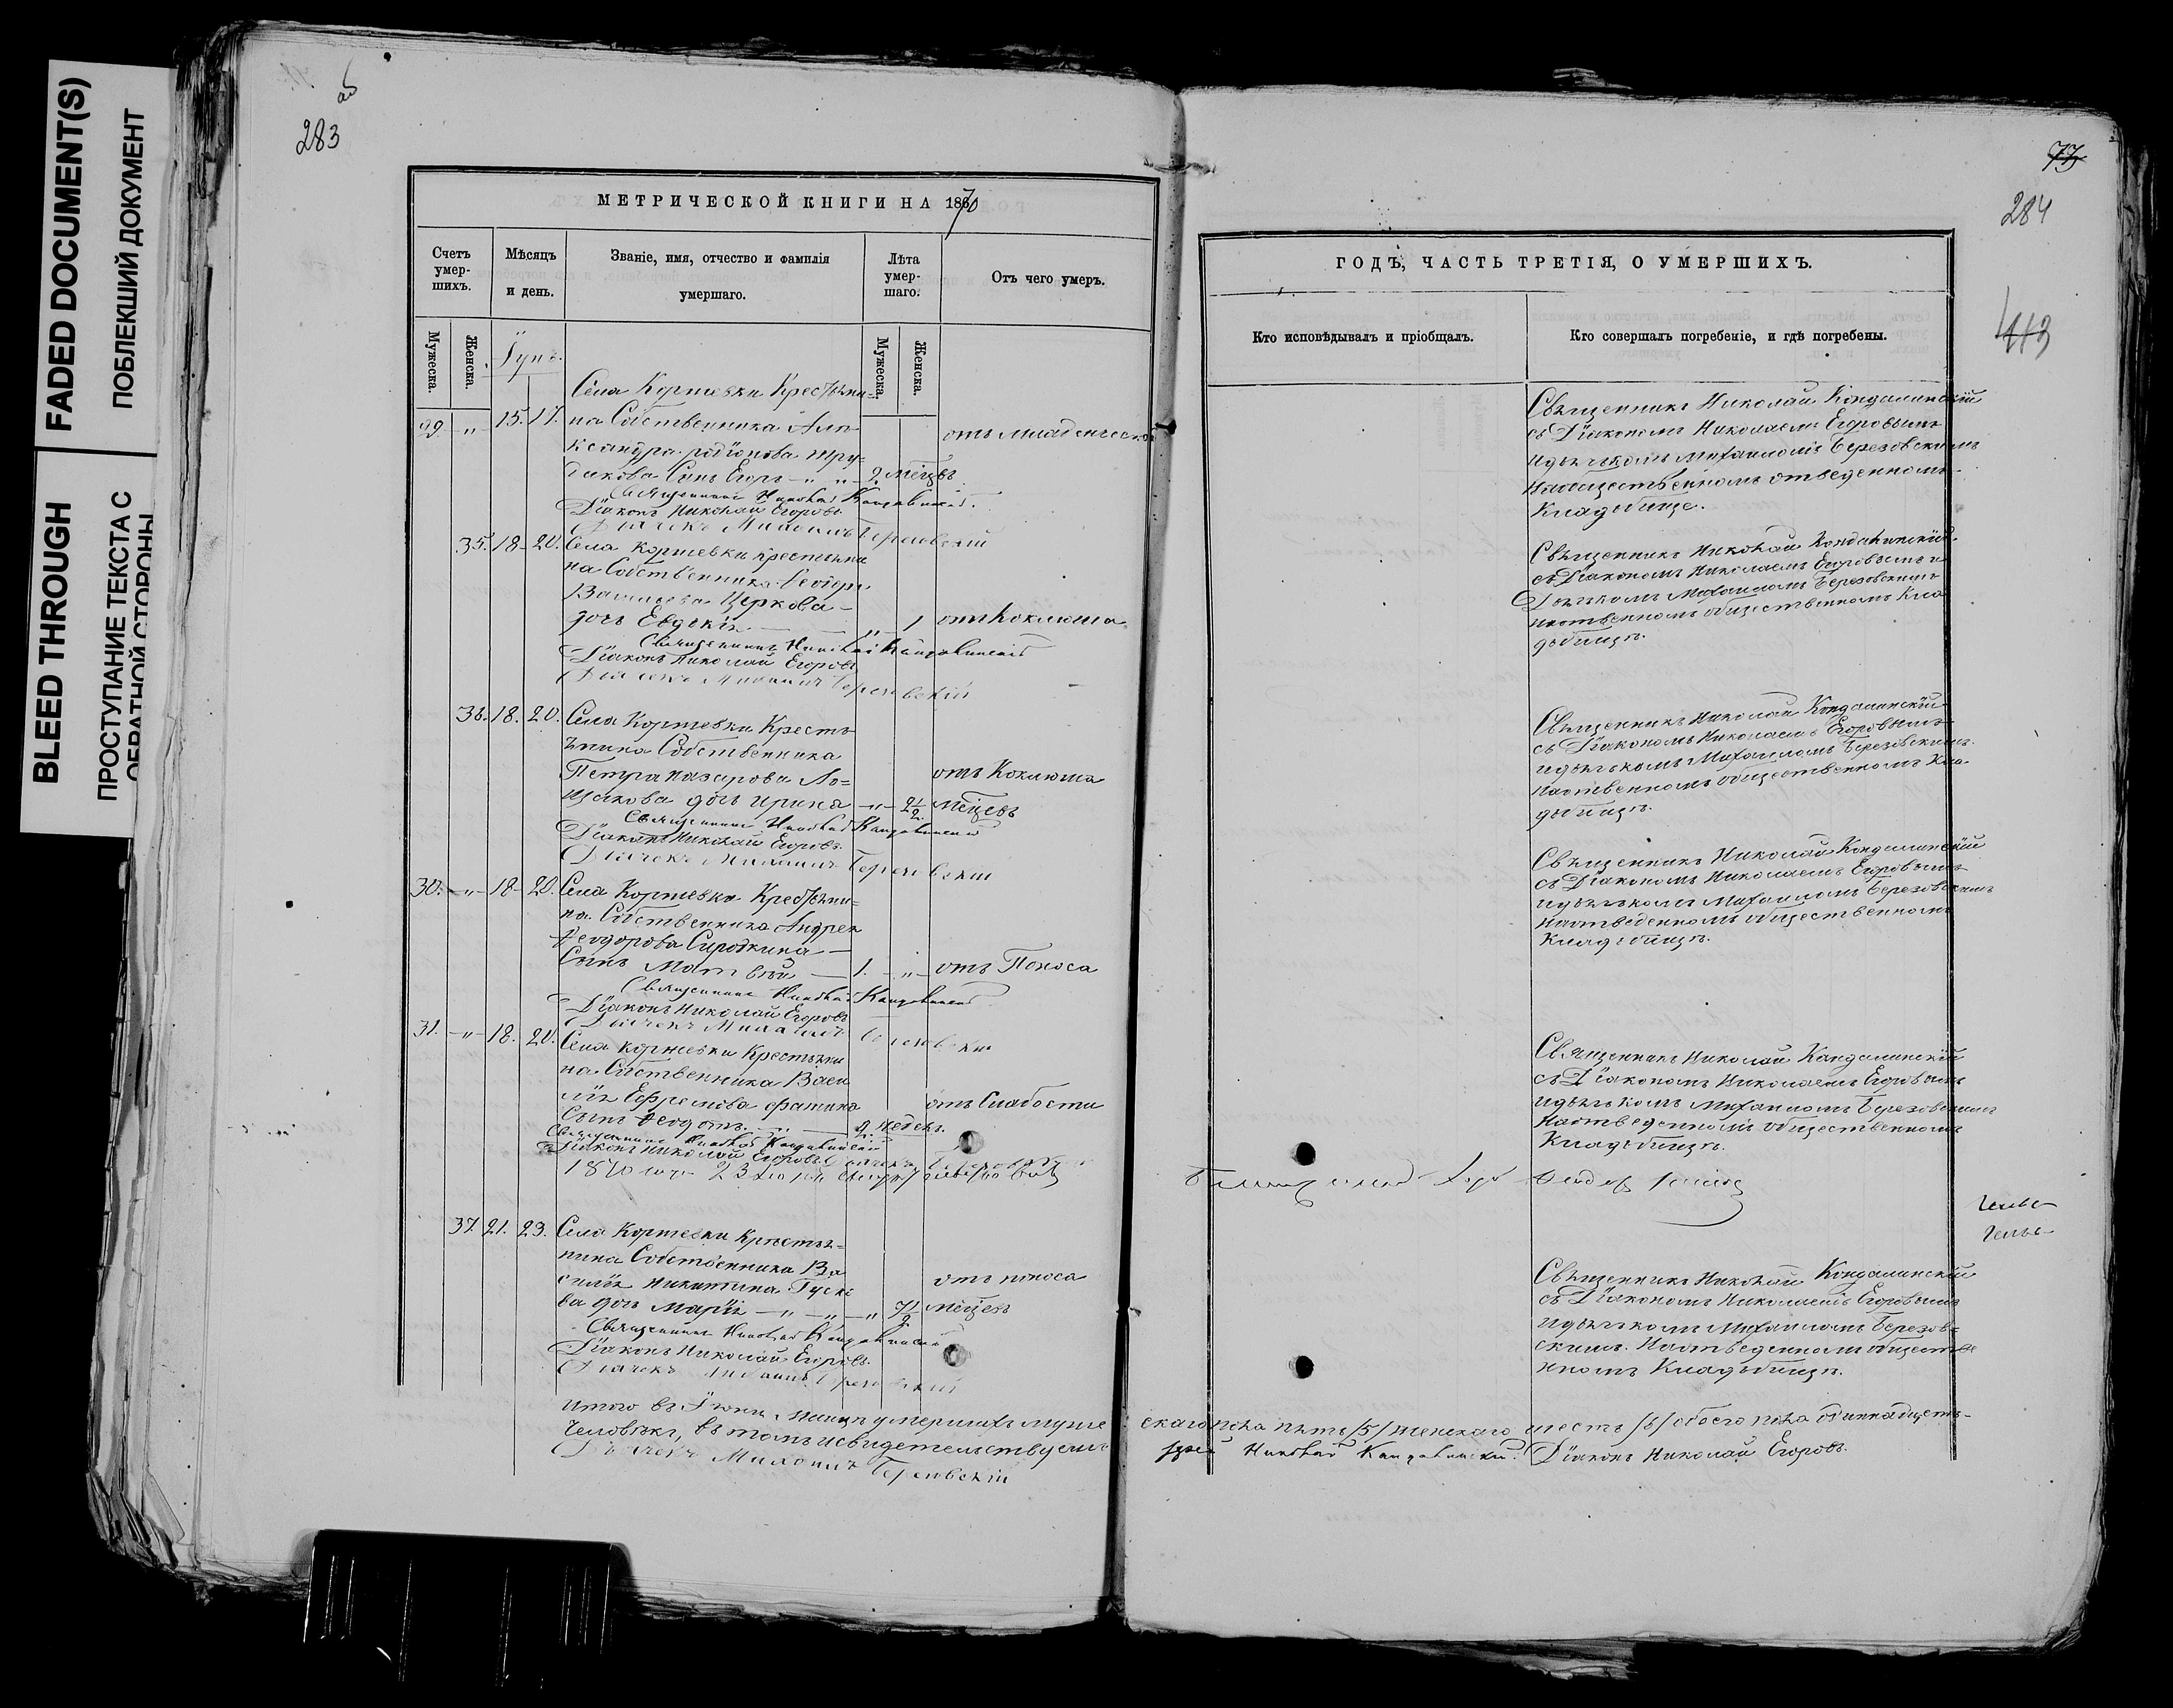 FADED DOCUMENT(S)
ПОБЛЕКШИЙ ДОКУМЕНТ
BLEED THROUGH
ПРОСТУПАНИЕ ТЕКСТА С
ОБРАТНОЙ СТОРОНЫ
об
283
МЕТРИЧЕСКОЙ КНИГИ НА 1870
Счетъ умер-шихъ.
Мѣсяцъ и день.
Званіе, имя, отчество и фамилія умершаго.
Лѣта умер-шаго.
Отъ чего умеръ.
Мужеска.
Женска.
Мужеска.
Женска.
Села Коржевки Крестьяни=
29. " 15. 17. на Собственника Але
ксандра Родіонова Тру=
дакова Сынъ Егоръ " " 2 мѣсцъ
Священникъ Николай Кандалинскій.
Діаконъ Николай Егоровъ
Дьячекъ Михаилъ Березовскій
35. 18. 20. Села Коржевки Крестьяни
на Собственника Ѳеодора
Васильева Церкова
дочь Евдокія " 1 отъ Коклюша
Священникъ Николай Кандалинскій
Діаконъ Николай Егоровъ
Дьячекъ Михаилъ Березовскій
36. 18. 20. Села Коржевки Кресть
янина Собственника
Петра Назарова Ло= отъ Коклюша
щакова дочь Ирина " 2 1/2 мѣсцевъ
Священникъ Николай Кандалинскій
Діаконъ Николай Егоровъ.
Дьячекъ Михаилъ Березовскій
30. " 18 20. Села Коржевки Крестьяни=
на Собственника Андрея
Ѳеодорова Сироткина
Сынъ Матвѣй 1. " отъ Поноса
Священникъ Николай Кандалинскій
Діаконъ Николай Егоровъ
Дьячекъ Михаилъ Березовскій
31. " 18. 20. Села Коржевки Крестьяни
на Собственника Васи
лія Ефремова отъ Слабости
Сынъ Ѳедотъ недель.
Священникъ Николай Кандалинскій
Діаконъ Николай Егоровъ
1870 23
37 21. 23. Села Коржевки Крестья=
нина Собственника Ва
силія Никитина Гуско отъ поноса
ва дочь Марія " " " 7 1/2 мѣсцевъ
Священникъ Николай Кандалинскій
Діаконъ Николай Егоровъ.
Дьячекъ Михаилъ Березовскій
73
284
113
ГОДЪ, ЧАСТЬ ТРЕТІЯ, О УМЕРШИХЪ.
Кто исповѣдывалъ и пріобщалъ.
Кто совершалъ погребеніе, и гдѣ погребены.
Священникъ Николай Кандалинскій
съ Діакономъ Николаемъ Егоровымъ
и дьячкомъ Михаиломъ Березовскимъ
на общественномъ отведенномъ
Кладбище.
Священникъ Николай Кандалинскій
съ Діакономъ Николаемъ Егоровымъ и
Дьячкомъ Михаиломъ Березовскимъ
общественномъ Кла
дбищѣ.
Священникъ Николай Кандалинскій
съ Діакономъ Николаемъ Егоровымъ
и дьячкомъ Михаиломъ Березовскимъ
общественномъ Кла
дбищѣ.
Священникъ Николай Кандалинскій
съ Діакономъ Николаемъ Егоровымъ
и дьячкомъ Михаиломъ Березовскимъ
на отведенномъ общественномъ
Кладбищѣ.
Священникъ Николай Кандалинскій
съ Діакономъ Николаемъ Егоровымъ
и дьячкомъ Михаиломъ Березовскимъ
на отведенномъ общественномъ
Кладбищѣ.
Священникъ Николай Кандалинскій
съ Діакономъ Николаемъ Егоровымъ
и дьячкомъ Михаиломъ Березов=
скимъ. На отведенномъ обществе
нномъ Кладбищѣ.
Итого въ Іюнѣ мѣсяцѣ умершихъ мужескаго пола пять /5/ женскаго шесть /6/ обоего пола одиннадцать
человѣкъ, въ томъ и свидетельствуемъ Іерей Николай Кандалинскій. Діаконъ Николай Егоровъ.
Дьячекъ Михаилъ Березовскій